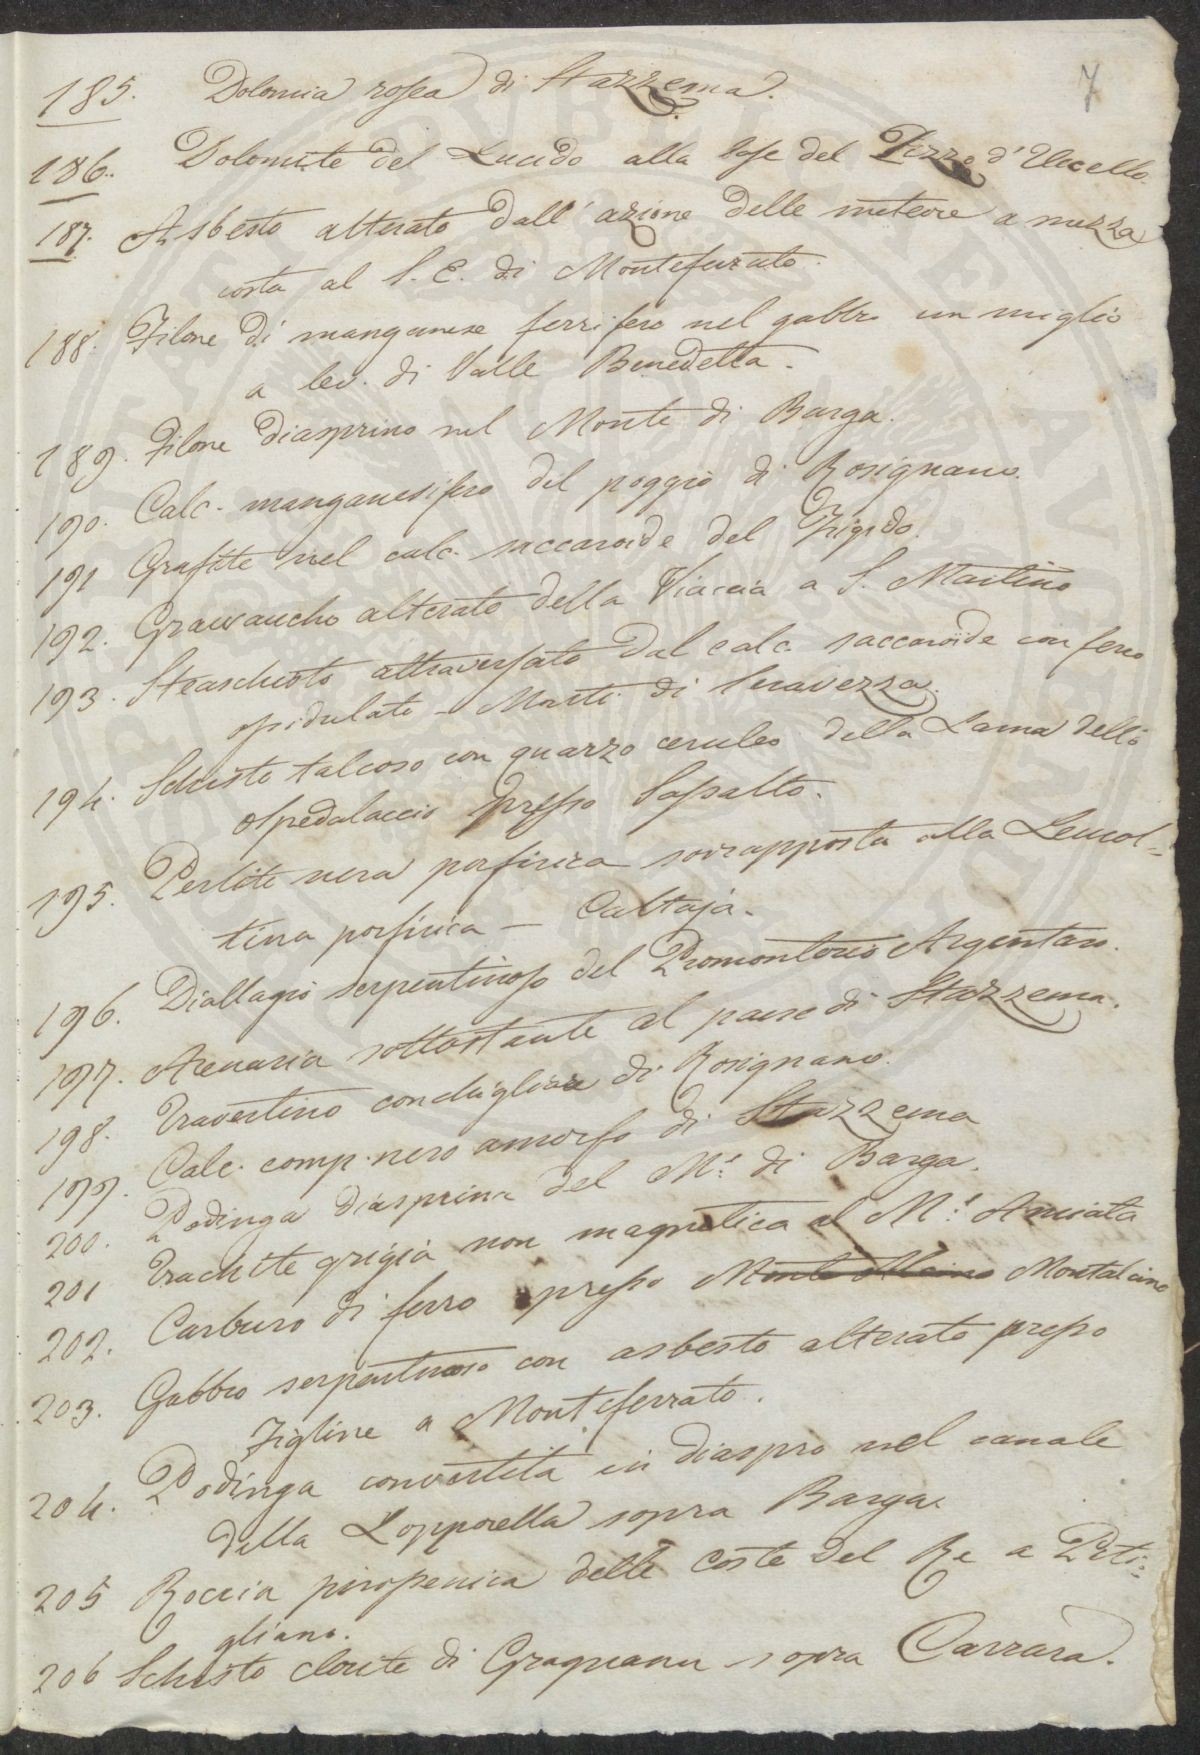 7
185. Dolomia rosea di Stazzema.
186. Dolomite del Lucido alla base del Pizzo d'Uccello.
187. Asbesto alterato dall'azione delle meteore a mezza
costa al S. E. di Monteferrato.
188. Filone di manganese ferrifero nel gabbro un miglio
a lev. di Valle Benedetta.
189. Filone diasprino nel Monte di Barga.
190. Calc. manganesifero del poggio di Rosignano.
191 Grafite nel calc. saccaroide del Frigido.
192. Grauvache alterato della Viaccia a S. Martino
193. Steaschisto attraversato dal calc. saccaroide con ferro
ossidulato - Monti di Seravezza.
194. Schisto talcoso con quarzo ceruleo della Lama dello
Ospedalaccio presso Sassalbo.
195. Perlite nera porfirica sovrapposta alla
tina porfirica - Caltaja.
196. Diallagio serpentinoso del Promontorio Argentaro.
197. Arenaria sottostante al paese di Stazzema.
198. Travertino conchigliare di Rosignano.
199. Calc. comp. nero amorfo di Stazzema
200. Podinga diasprina del M.e di Barga.
201 Trachite grigia non magnetica al M.e Amiata
202. Carburo di ferro presso Monte Alcino Montalcino
203. Gabbro serpentinoso con asbesto alterato presso
Figline a Monteferrato.
204. Podinga convertita in diaspro nel canale
della Lopporella sopra Barga.
205 Roccia pirossenica delle Coste del Re a Piti-
gliano.
206 Schisto clorite di Gragnana sopra Carrara.